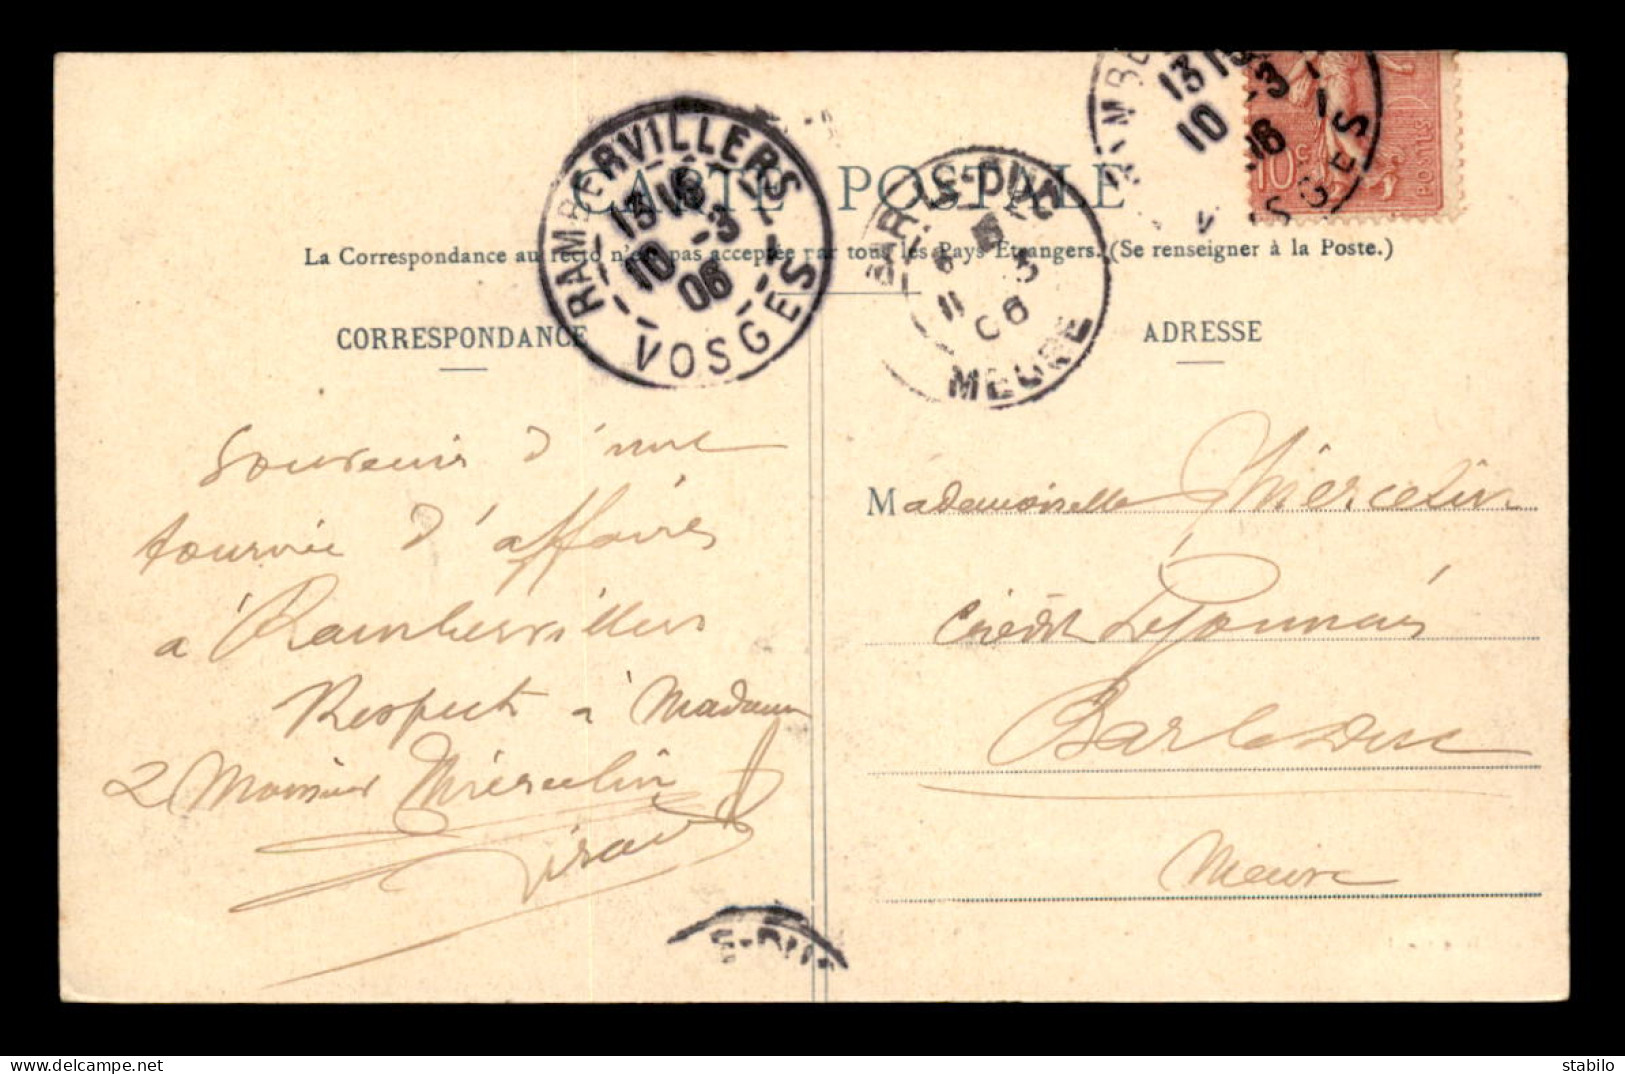 CARTE POSTALE
La Correspondance au recto n'est pas acceptée par tous les Pays Etrangers. (Se renseigner à la Poste.)
RAMBERVILLERS
13 15
10 -3
06
VOSGES
BAR-LE-DUC
11 3
06
MEUSE
13 15
10 -3
06
VOSGES
10c
POSTES
CORRESPONDANCE
Souvenir d'une
tournée d'affaires
à Rambervillers
Respects à Madame
& Monsieur Miercelin
Girard
E-DU
ADRESSE
Mademoiselle Miercelin
Crédit Lyonnais
Bar le Duc
Meuse
delcampe.net
stabilo